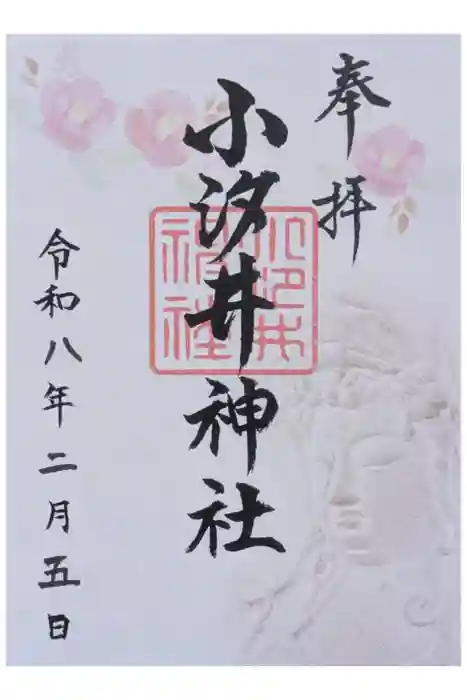 奉拝
小汐井神社
小汐井
神社
令和八年二月五日